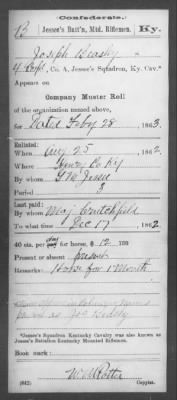 Confederate.
B | Jessee's Batt'n, Mtd. Riflemen. | Ky.
Joseph Beasly
4 Corpl, Co. A, Jessee's Squadron, Ky. Cav.*
Appears on
Company Muster Roll
of the organization named above,
for Dated Feby 28, 1863.
Enlisted:
When Aug 25, 1862.
Where Henry Co Ky
By whom G M Jessee
Period 3
Last paid:
By whom Maj Crutchfield
To what time Dec 17, 1862.
for horse, $12 100
Present or absent present
Remarks: Horse for 1 Month
as Joe Beasly
*Jessee's Squadron Kentucky Cavalry was also known as
Jessee's Battalion Kentucky Mounted Riflemen.
Book mark:
(642) Copyist.